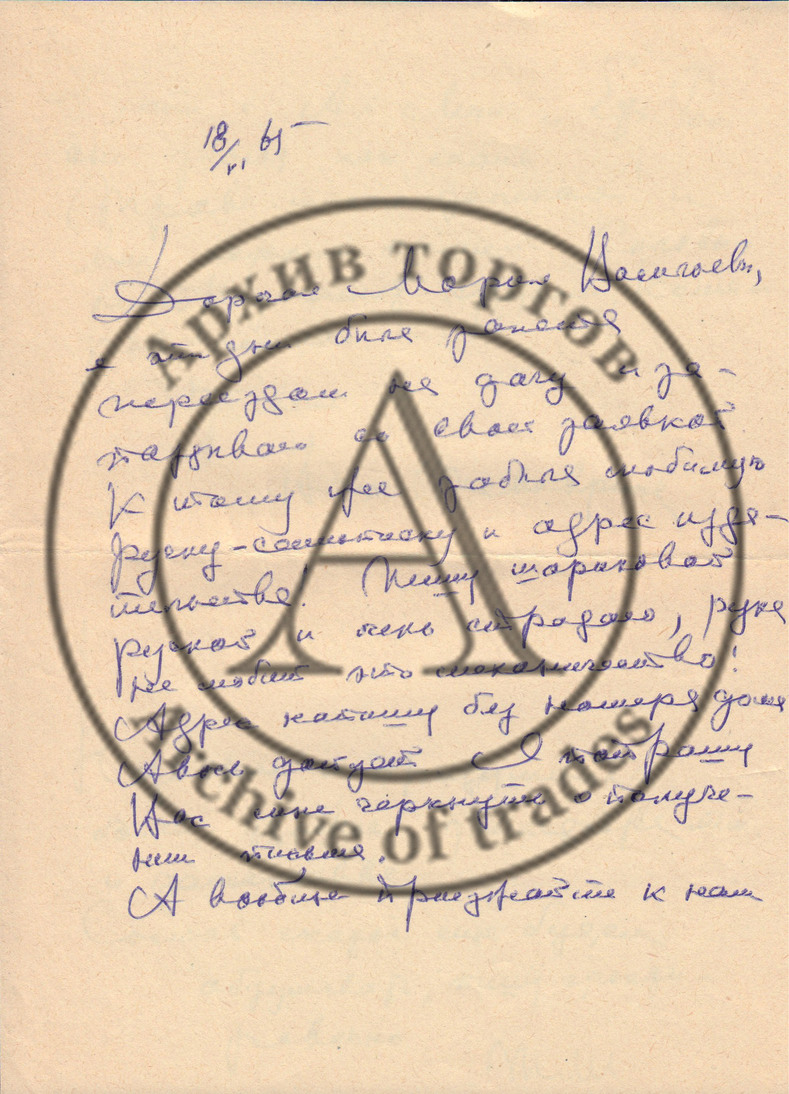 18/VI 65
Архив торгов
Дорогая Мария Васильевна,
я эти дни была занята
переездом на дачу и за-
паздываю со своей заявкой
К тому же забыла любимую
ручку-самописку и адрес изда-
тельства! Пишу шариковой
ручкой и очень страдаю, рука
не любит это мошенничество!
Адрес напишу без номера дома
Авось дойдет Я попрошу
Вас мне черкнуть о получе-
нии письма.
А вообще приезжайте к нам
Archive of trades